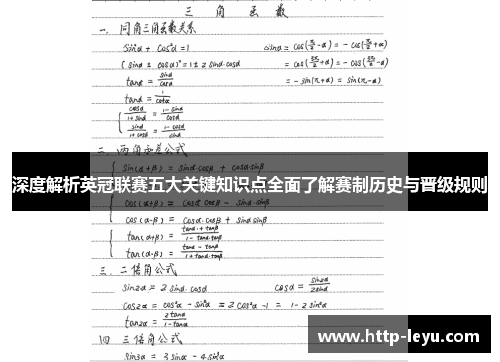 三 角 函 数
一、同角三角函数关系
sin²α + cos²α = 1
sinα = cos(π/2 - α) = - cos(π/2 + α)
(sinα ± cosα)² = 1 ± 2 sinα·cosα
= cos(3π/2 + α) = - cos(3π/2 - α)
tanα = sinα/cosα
= - sin(π + α) = sin(π - α)
tanα = 1/cotα
cosα/1+sinα = 1-sinα/cosα
sinα/1+cosα = 1-cosα/sinα
二、两角和差公式
sin(α+β) = sinα·cosβ + cosα·sinβ
深度解析英冠联赛五大关键知识点全面了解赛制历史与晋级规则
cos(α+β) = cosα·cosβ - sinα·sinβ
cos(α-β) = cosα·cosβ + sinα·sinβ
tan(α+β) = tanα + tanβ/1 - tanα·tanβ
tan(α-β) = tanα - tanβ/1 + tanα·tanβ
三、二倍角公式
sin2α = 2 sinα·cosα
cosα = sin2α/2sinα
cos2α = cos²α - sin²α = 2cos²α - 1 = 1 - 2sin²α
tan2α = 2tanα/1-tan²α
四 三倍角公式
sin3α = 3sinα - 4sin³α
www.http-leyu.com